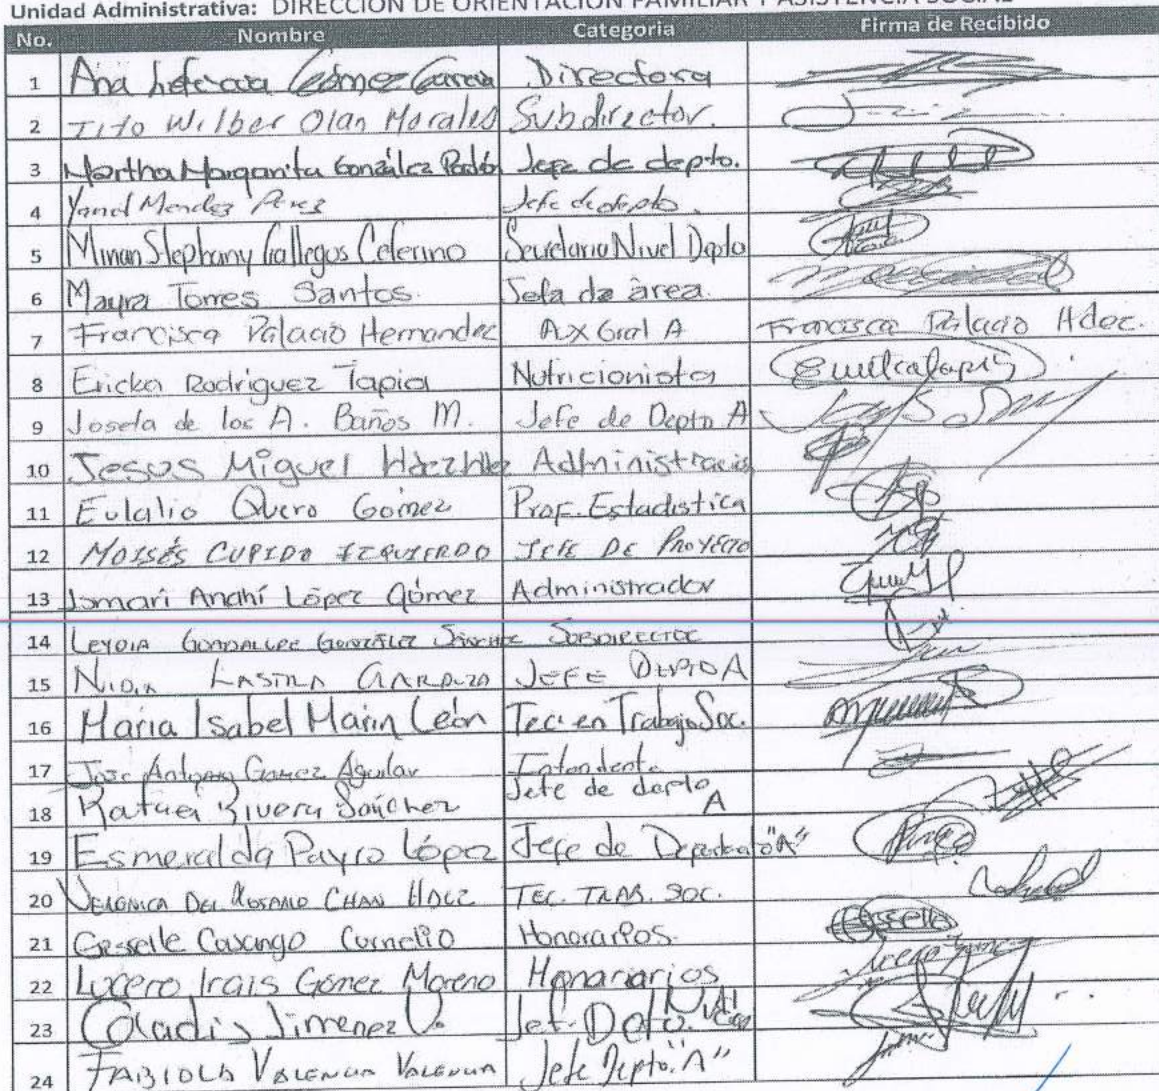 Unidad Administrativa: DIRECCIÓN DE ORIENTACIÓN FAMILIAR Y ASISTENCIA SOCIAL
No. Nombre Categoria Firma de Recibido
1 Ana Gómez García Directora
2 Tito Wilber Olan Morales Subdirector.
3 Martha Margarita González Jefe de depto.
4 Mendez Perez Jefe de depto.
5 Stephany Gallegos Ceferino Secretaria Nivel Depto
6 Mayra Torres Santos. Jefa de área.
7 Francisca Palacio Hernandez Ax Gral A Francisca Palacio Hdez.
8 Ericka Rodriguez Tapia Nutricionista
9 Josefa de los A. Baños M. Jefe de Depto A
10 Jesus Miguel Administracio
11 Eulalio Quero Gómez Prof. Estadistica
12 MOISÉS CUPIDO IZQUIERDO JEFE DE PROYECTO
13 Ismari Anahí López Gómez Administrador
14 LEYDIA GUADALUPE GONZÁLEZ SÁNCHEZ SUBDIRECTOR
15 NIDIA JEFE DEPTO A
16 Maria Isabel Marin León Tec. en Trabajo Soc.
17 Jose Antonio Gomez Aguilar Intendente
18 Rafael Rivera Sánchez Jefe de depto A
19 Esmeralda Payro López Jefe de "A"
20 VERÓNICA DEL ROSARIO CHAN HDEZ TEC. TRAB. SOC.
21 Gesselle Cornelio Honorarios. Gesselle
22 Lucero Irais Gómez Moreno Honorarios
23 Jimenez V. Jef. Depto.
24 FABIOLA VALENCIA VALENCIA Jefe Depto. "A"